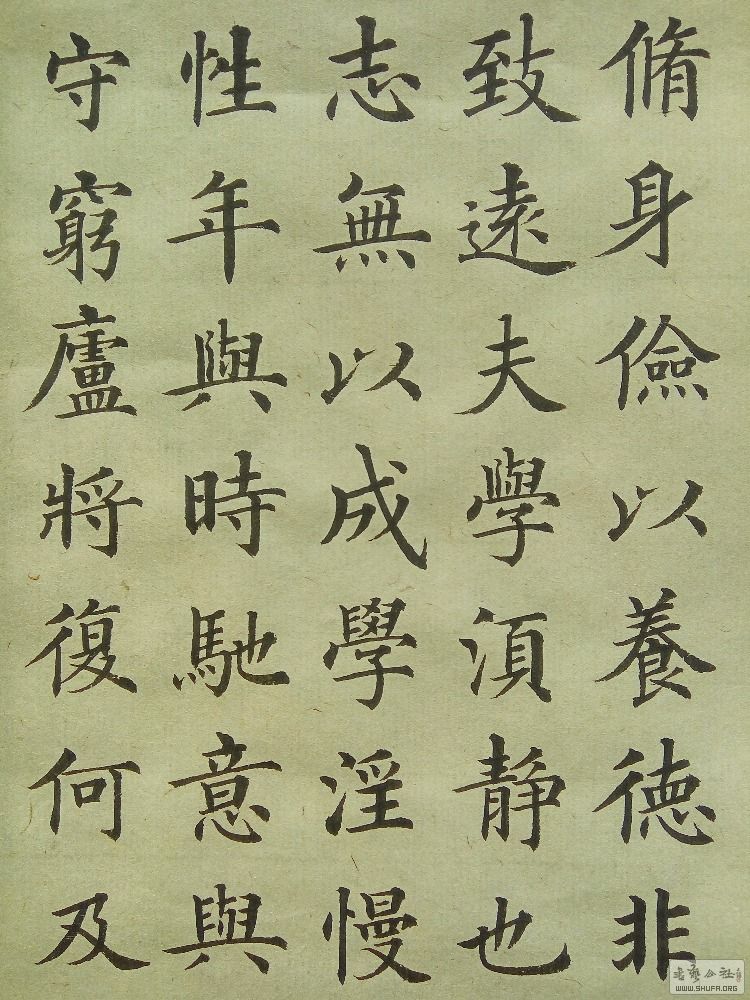 脩身儉以養德非
致遠夫學須静也
志無以成學淫慢
性年與時馳意與
守窮廬將復何及
書藝公社
WWW.SHUFA.ORG